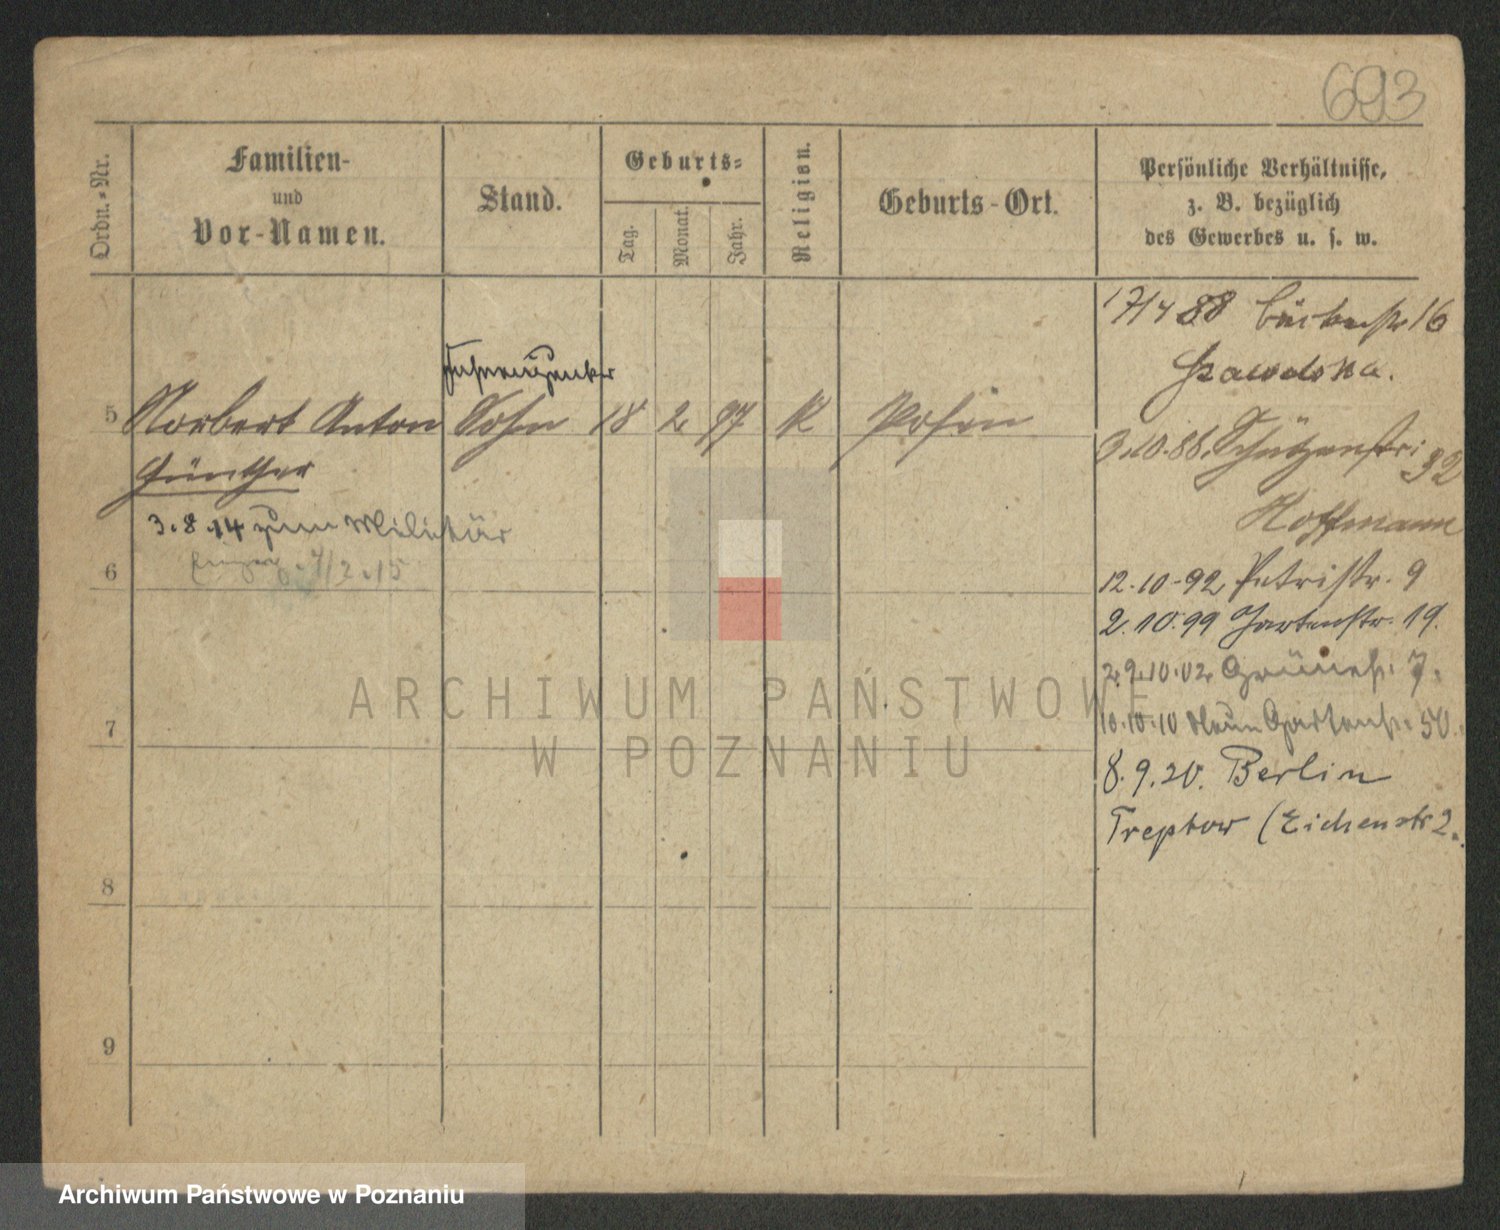 693
Ordn.-Nr.
Familien-
und
Vor-Namen.
Stand.
Geburts-
Tag.
Monat.
Jahr.
Religion.
Geburts-Ort.
Persönliche Verhältnisse,
z. B. bezüglich
des Gewerbes u. s. w.
17/4 88 16
5 Norbert Anton Sohn 18 2 97 K Posen
Günther
3.8.14 zum Militär
7/2.15
3.10.88. Schützenstr: 32
Hoffmann
6
12.10.92 Petristr. 9
2.10.99 Gartenstr. 19.
29.10.02 Grünestr. 7.
10.10.10 Neue Gartenstr. 50.
8.9.20. Berlin
Treptow (Eichenstr 2.
7
8
9
ARCHIWUM PAŃSTWOWE
W POZNANIU
Archiwum Państwowe w Poznaniu